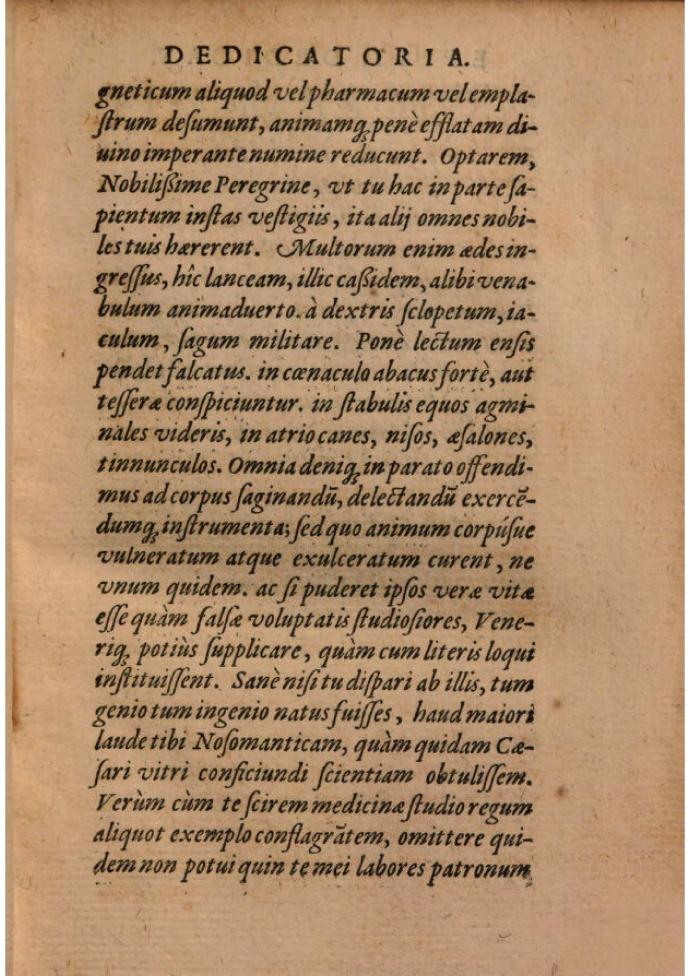 DEDICATORIA.
gneticum aliquod vel pharmacum vel empla-
ſtrum deſumunt, animamq́; penè efflatam di-
uino imperante numine reducunt. Optarem,
Nobilißime Peregrine, vt tu hac in parte ſa-
pientum inſtas veſtigiis, ita alij omnes nobi-
les tuis hærerent. Multorum enim ædes in-
greſſus, hîc lanceam, illic caßidem, alibi vena-
bulum animaduerto. à dextris ſclopetum, ia-
culum, ſagum militare. Ponè lectum enſis
pendet falcatus. in cœnaculo abacus fortè, aut
teſſeræ conſpiciuntur. in ſtabulis equos agmi-
nales videris, in atrio canes, niſos, æſalones,
tinnunculos. Omnia deniq́; in parato offendi-
mus ad corpus ſaginandũ, delectandũ exercẽ-
dumq́; inſtrumenta; ſed quo animum corpúſue
vulneratum atque exulceratum curent, ne
vnum quidem. ac ſi puderet ipſos veræ vitæ
eſſe quàm falſæ voluptatis ſtudioſiores, Vene-
riq́; potiùs ſupplicare, quàm cum literis loqui
inſtituiſſent. Sanè niſi tu diſpari ab illis, tum
genio tum ingenio natus fuiſſes, haud maiori
laude tibi Noſomanticam, quàm quidam Cæ-
ſari vitri conficiundi ſcientiam obtuliſſem.
Verùm cùm te ſcirem medicinæ ſtudio regum
aliquot exemplo conflagrãtem, omittere qui-
dem non potui quin te mei labores patronum